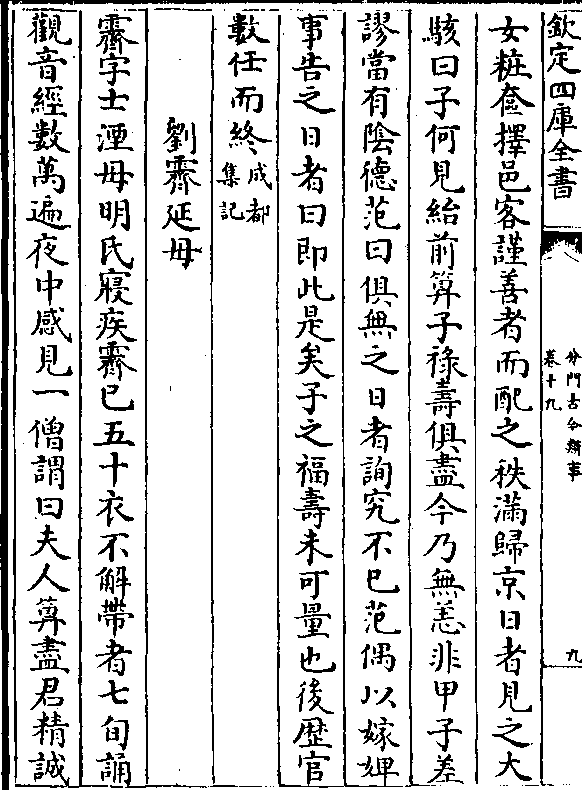 欽定四庫全書
分門古今類事
卷十九
九
女粧奩擇邑客謹善者而配之秩滿歸京日者見之大
駭曰子何見紿前筭子祿壽俱盡今乃無恙非甲子差
謬當有陰德范曰俱無之日者詢究不已范偶以嫁婢
事告之日者曰即此是矣子之福壽未可量也後歴官
數任而終成都集記
劉霽延母
霽字士湮母明氏寢疾霽已五十衣不解帶者七旬誦
觀音經數萬遍夜中感見一僧謂曰夫人筭盡君精誠